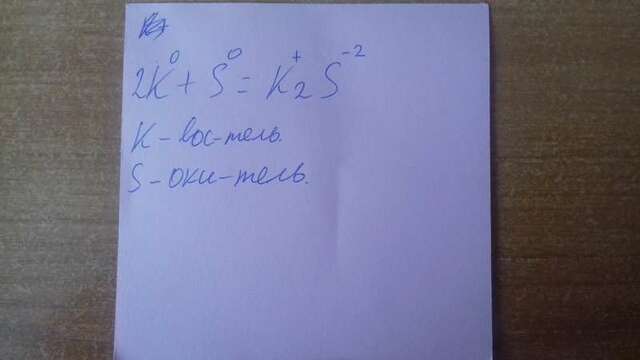 2K⁰ + S⁰ = K₂⁺S⁻²
K – вос-тель.
S – оки-тель.